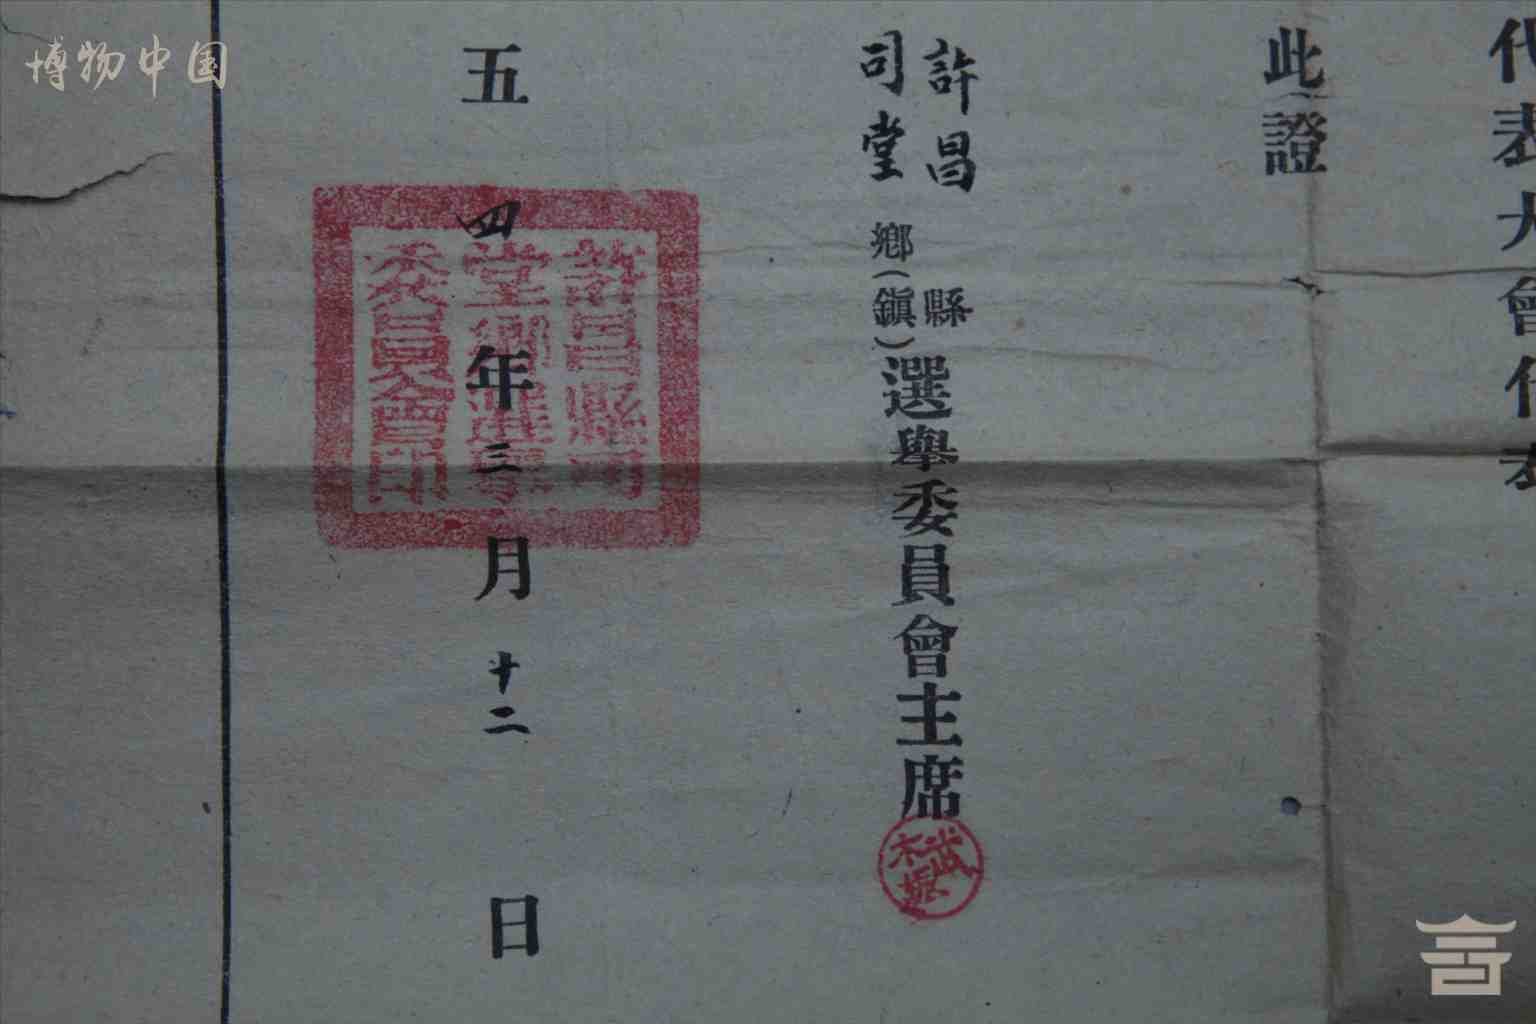 代表大會代表
此證
許昌縣
司堂鄉(鎮)選舉委員會主席
五四年三月十二日
許昌縣司
堂鄉選舉
委員會印
武
木
博物中国